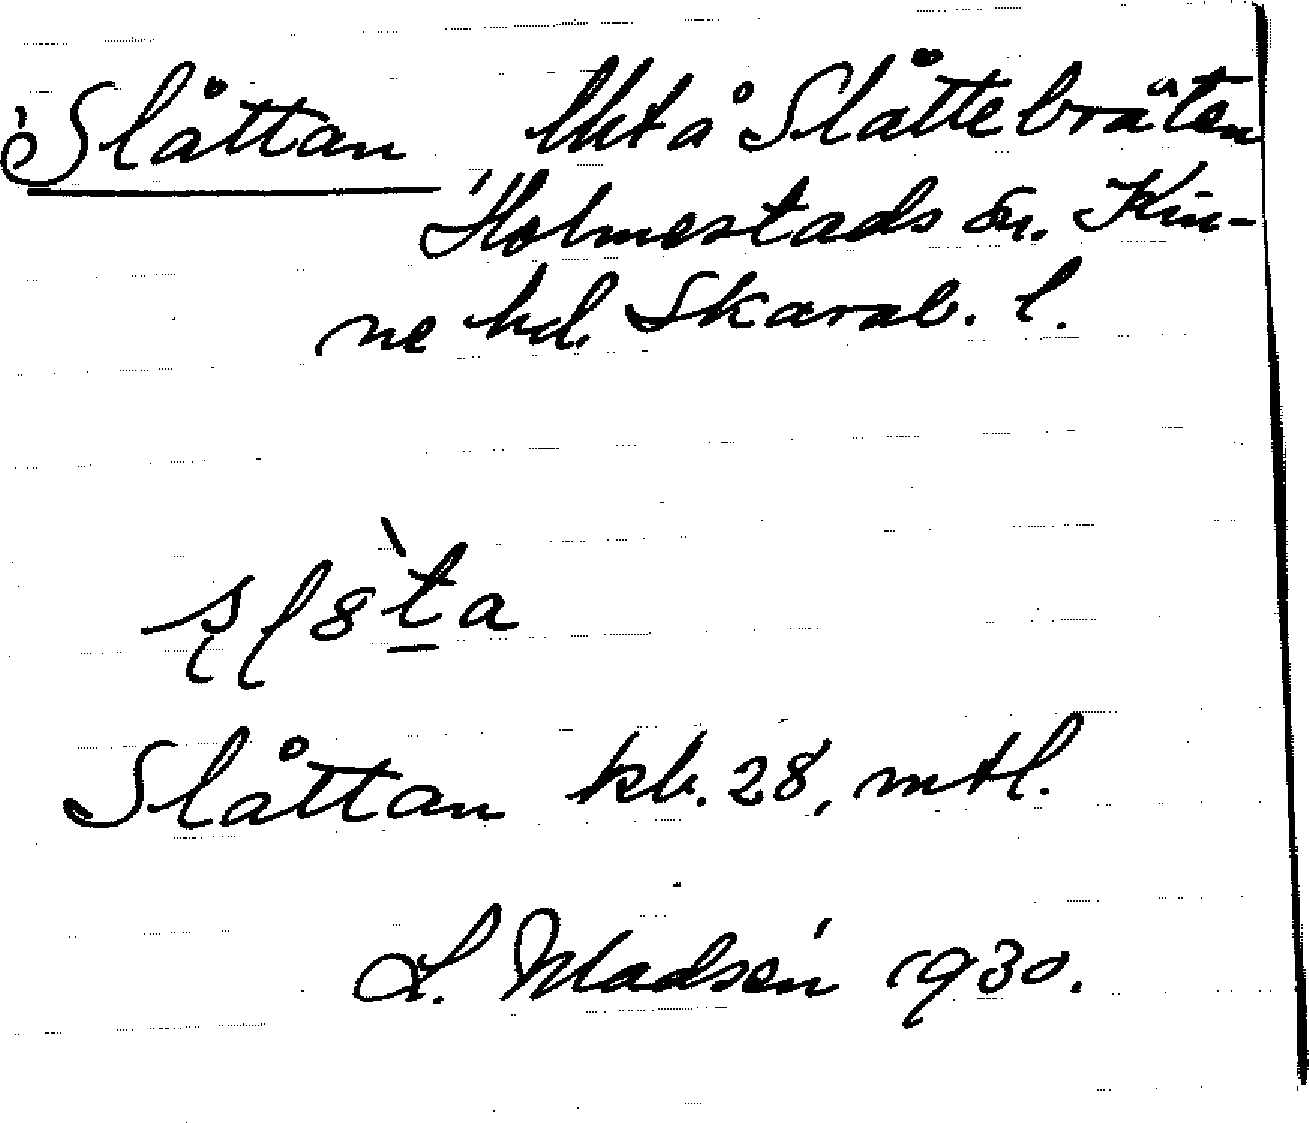 Slåttan lht å Slåttebråten
Holmestads sn. Kin-
ne hd. Skarab. l.
Slåttan kb. 28, mtl.
L. Madsén 1930.